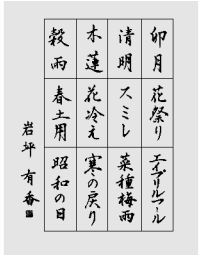 卯月
花祭り
エイプリルフール
清明
スミレ
菜種梅雨
木蓮
花冷え
寒の戻り
穀雨
春土用
昭和の日
岩坪 有香